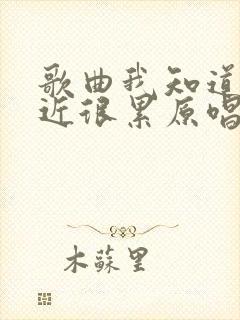 歌曲我知道
近很累原唱
木蘇里